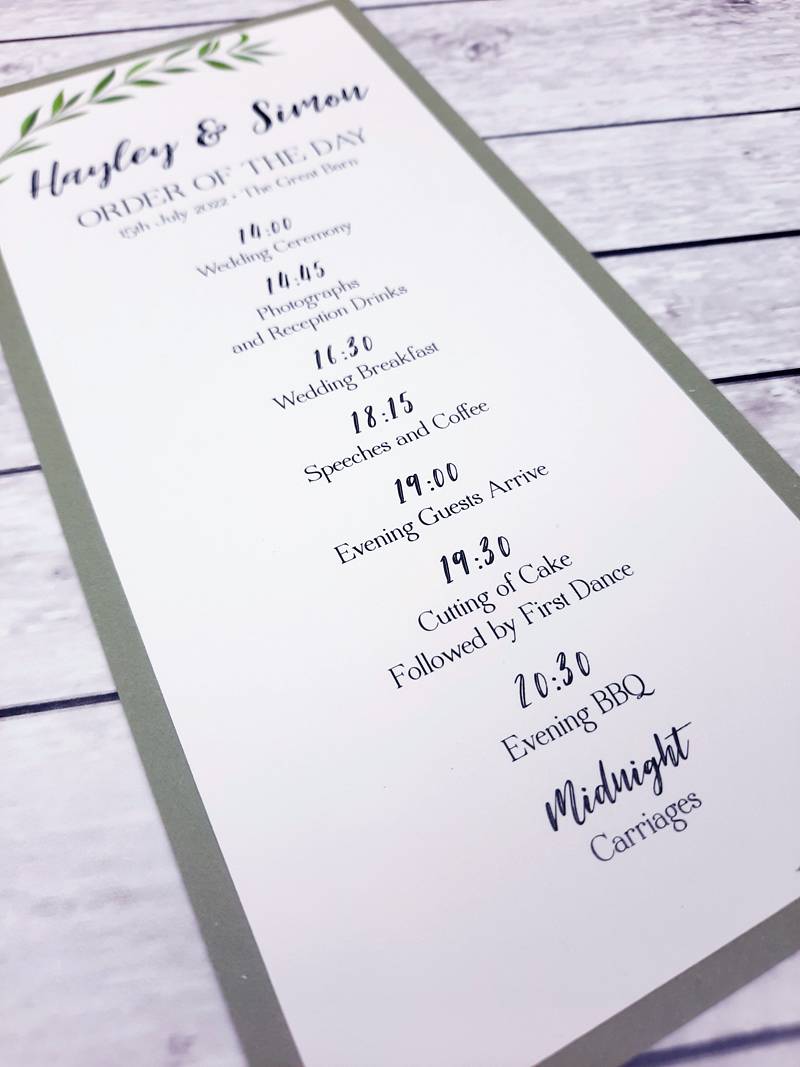 Hayley & Simon
ORDER OF THE DAY
15th July 2022 • The Great Barn
14:00
Wedding Ceremony
14:45
Photographs
and Reception Drinks
16:30
Wedding Breakfast
18:15
Speeches and Coffee
19:00
Evening Guests Arrive
19:30
Cutting of Cake
Followed by First Dance
20:30
Evening BBQ
Midnight
Carriages